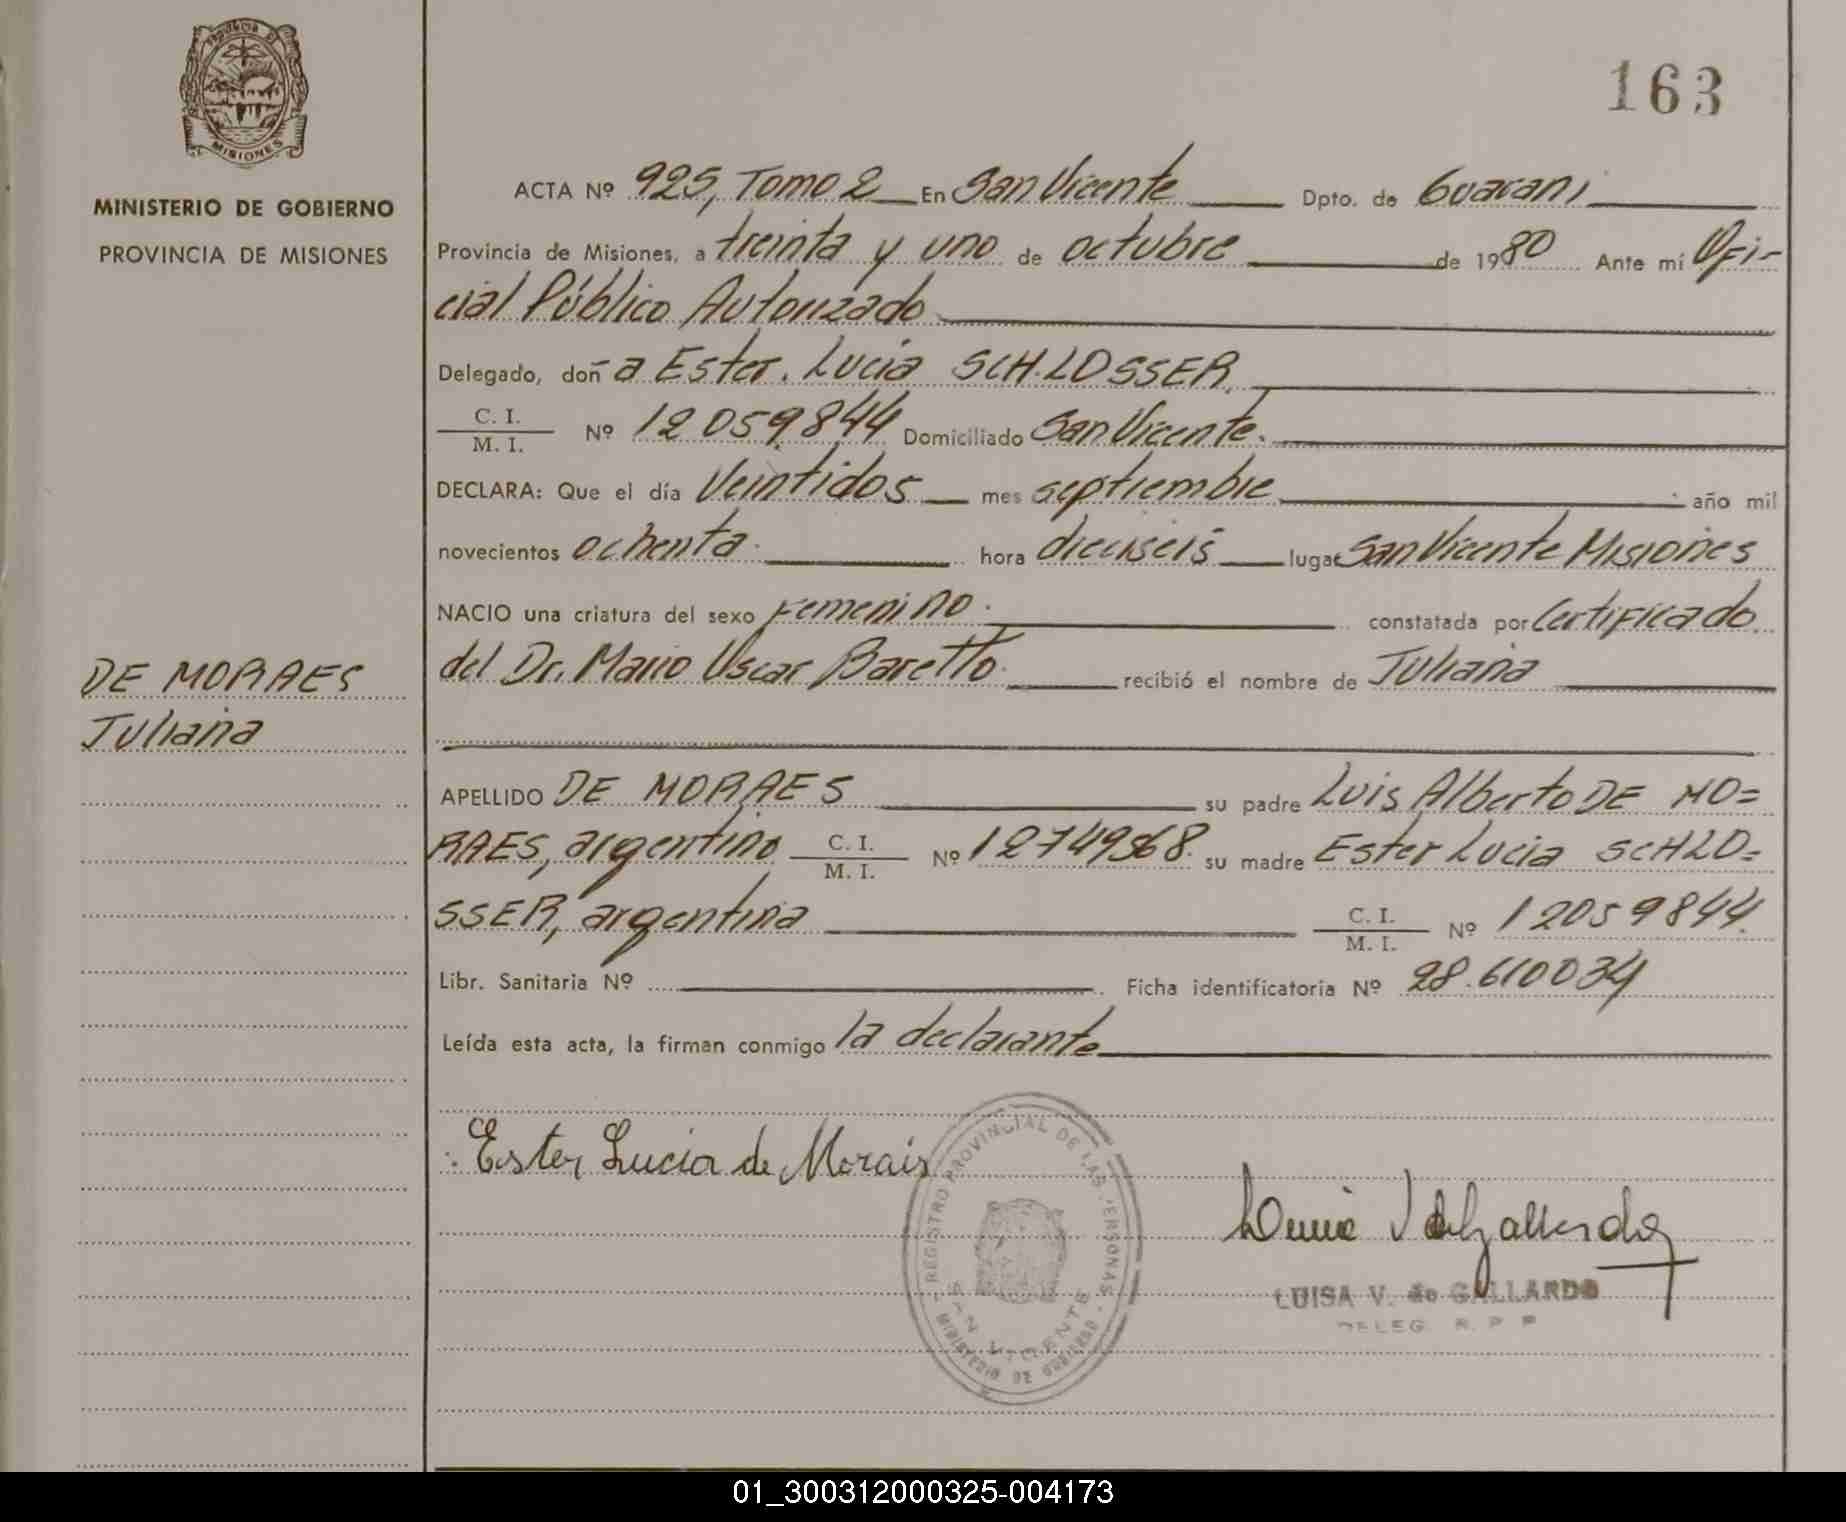 163
MISIONES
MINISTERIO DE GOBIERNO
PROVINCIA DE MISIONES
DE MORAES
Juliana
ACTA Nº 925, Tomo 2 En San Vicente Dpto. de Guarani
Provincia de Misiones, a treinta y uno de octubre de 1980 Ante mí Ofi-
cial Público Autorizado
Delegado, doña Ester. Lucia SCHLOSSER.
C. I.
M. I. Nº 12059.844 Domiciliado San Vicente.
DECLARA: Que el día Veintidos mes septiembre año mil
novecientos ochenta. hora dieciseis lugar San Vicente Misiones
NACIO una criatura del sexo Femenino. constatada por Certificado
del Dr. Mario Oscar Baretto. recibió el nombre de Juliana
APELLIDO DE MORAES su padre Luis Alberto DE MO=
RAES, argentino C. I.
M. I. Nº su madre Ester Lucia SCHLO=
SSER, argentina C. I.
M. I. Nº 12059844.
Libr. Sanitaria Nº Ficha identificatoria Nº 28.610034
Leída esta acta, la firman conmigo la declarante
Ester Lucia de Morais
REGISTRO PROVINCIAL DE LAS PERSONAS
SAN VICENTE
MINISTERIO DE GOBIERNO
LUISA V. de GALLARDO
DELEG. R. P. P.
01_300312000325-004173